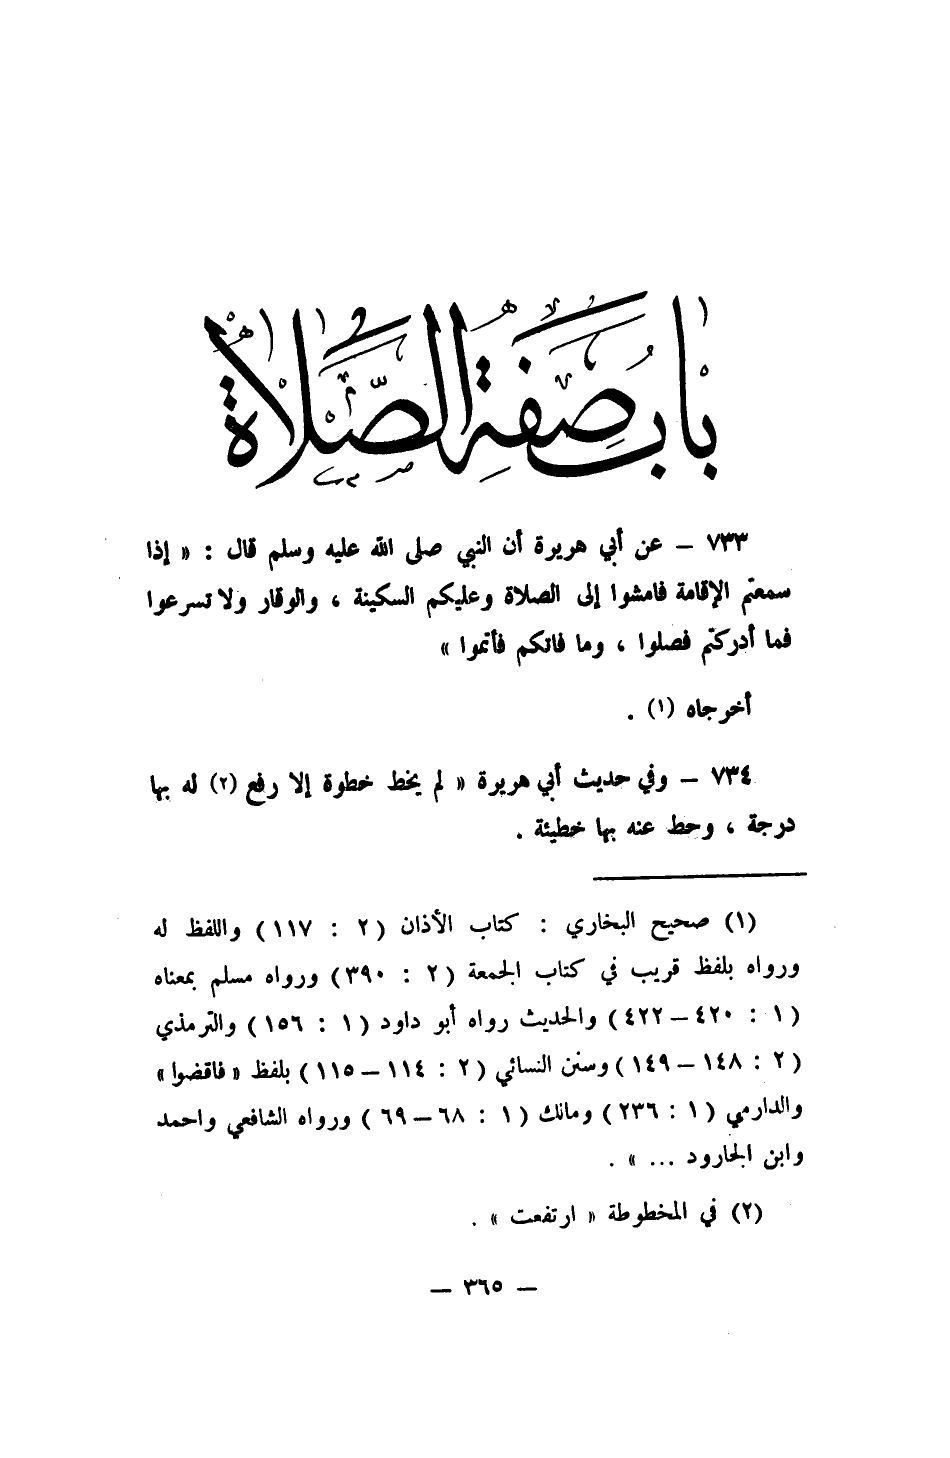 باب صفة الصلاة
٧٣٣ – عن أبي هريرة أن النبي صلى الله عليه وسلم قال : « إذا
سمعتم الإقامة فامشوا إلى الصلاة وعليكم السكينة ، والوقار ولا تسرعوا
فما أدركتم فصلوا ، وما فاتكم فأتموا »
أخرجاه (١) .
٧٣٤ – وفي حديث أبي هريرة « لم يخط خطوة إلا رفع (٢) له بها
درجة ، وحط عنه بها خطيئة .
(١) صحيح البخاري : كتاب الأذان ( ٢ : ١١٧ ) واللفظ له
ورواه بلفظ قريب في كتاب الجمعة ( ٢ : ٣٩٠ ) ورواه مسلم بمعناه
( ١ : ٤٢٠ – ٤٢٢ ) والحديث رواه أبو داود ( ١ : ١٥٦ ) والترمذي
( ٢ : ١٤٨ – ١٤٩ ) وسنن النسائي ( ٢ : ١١٤ – ١١٥ ) بلفظ « فاقضوا »
والدارمي ( ١ : ٢٣٦ ) ومالك ( ١ : ٦٨ – ٦٩ ) ورواه الشافعي واحمد
وابن الجارود ... » .
(٢) في المخطوطة « ارتفعت » .
– ٣٦٥ –